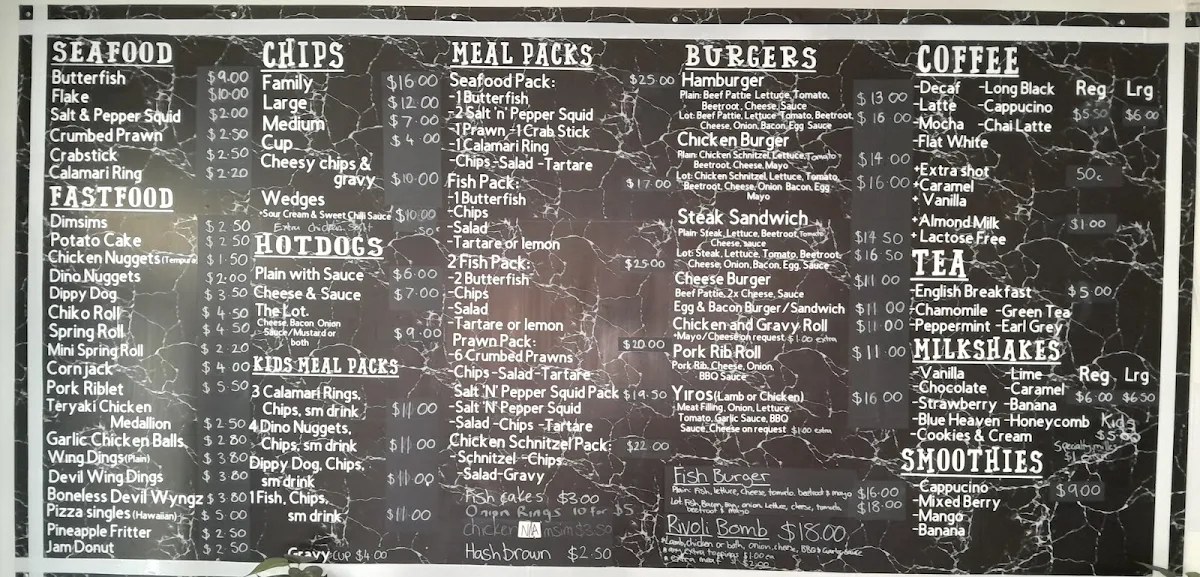 SEAFOOD
Butterfish $9.00
Flake $10.00
Salt & Pepper Squid $2.00
Crumbed Prawn $2.50
Crabstick $2.50
Calamari Ring $2.20
FASTFOOD
Dimsims $2 50
Potato Cake $2 50
Chicken Nuggets (Tempura) $1.50
Dino Nuggets $2.00
Dippy Dog $3 50
Chiko Roll $4 50
Spring Roll $4 50
Mini Spring Roll $2 20
Corn jack $4 00
Pork Riblet $5 50
Teryaki Chicken
Medallion $2 50
Garlic Chicken Balls $2 80
Wing Dings (Plain) $3 80
Devil Wing Dings $3 80
Boneless Devil Wyngz $3 80
Pizza singles (Hawaiian) $5 00
Pineapple Fritter $2 50
Jam Donut $2 50
CHIPS
Family $16 00
Large $12 00
Medium $7 00
Cup $4 00
Cheesy chips &
gravy $10.00
Wedges
+Sour Cream & Sweet Chilli Sauce $10.00
Extra chicken salt 50c
HOTDOGS
Plain with Sauce $6.00
Cheese & Sauce $7.00
The Lot
Cheese, Bacon Onion
Sauce/Mustard or
both $9.00
KIDS MEAL PACKS
3 Calamari Rings,
Chips, sm drink $11.00
4 Dino Nuggets,
Chips, sm drink $11.00
Dippy Dog, Chips,
sm drink $11.00
1 Fish, Chips,
sm drink $11.00
Gravy cup $4.00
MEAL PACKS
Seafood Pack: $25.00
-1 Butterfish
-2 Salt 'n' Pepper Squid
-1 Prawn -1 Crab Stick
-1 Calamari Ring
-Chips -Salad -Tartare
Fish Pack: $17.00
-1 Butterfish
-Chips
-Salad
-Tartare or lemon
2 Fish Pack: $25.00
-2 Butterfish
-Chips
-Salad
-Tartare or lemon
Prawn Pack: $20.00
-6 Crumbed Prawns
-Chips -Salad -Tartare
Salt 'N' Pepper Squid Pack $19.50
-Salt 'N' Pepper Squid
-Salad -Chips -Tartare
Chicken Schnitzel Pack: $22.00
-Schnitzel -Chips
-Salad-Gravy
Fish cakes $3.00
Onion Rings 10 for $5
chicken N/A msim $2.50
Hash brown $2.50
BURGERS
Hamburger
Plain: Beef Pattie Lettuce, Tomato,
Beetroot, Cheese, Sauce $13 00
Lot: Beef Pattie, Lettuce Tomato, Beetroot,
Cheese, Onion, Bacon, Egg Sauce $16 00
Chicken Burger
Plain: Chicken Schnitzel, Lettuce, Tomato
Beetroot, Cheese, Mayo $14 00
Lot: Chicken Schnitzel, Lettuce, Tomato,
Beetroot, Cheese, Onion Bacon, Egg
Mayo $16.00
Steak Sandwich
Plain: Steak, Lettuce, Beetroot, Tomato
Cheese, sauce $14 50
Lot: Steak, Lettuce, Tomato, Beetroot,
Cheese, Onion, Bacon, Egg, Sauce $16 50
Cheese Burger
Beef Pattie, 2x Cheese, Sauce $11 00
Egg & Bacon Burger/Sandwich $11 00
Chicken and Gravy Roll $11.00
+Mayo/Cheese on request $1.00 extra
Pork Rib Roll $11 00
Pork Rib, Cheese, Onion,
BBQ Sauce
Yiros (Lamb or Chicken) $16 00
Meat Filling, Onion, Lettuce,
Tomato, Garlic Sauce, BBQ
Sauce, Cheese on request $1.00 extra
Fish Burger
Plain: Fish, lettuce, cheese, tomato, beetroot & mayo $16.00
Lot: Fish, Bacon, Egg, onion, lettuce, cheese, tomato, $18.00
beetroot & mayo
Rivoli Bomb $18.00
*Lamb, chicken or both, onion, cheese, BBQ & Garlic sauce
* any extra toppings $1.00 ea
* extra meat $2.00
COFFEE
-Decaf -Long Black Reg Lrg
-Latte -Cappucino $5.50 $6 00
-Mocha -Chai Latte
-Flat White
+Extra shot 50c
+Caramel
+ Vanilla
+Almond Milk $1.00
+ Lactose Free
TEA
-English Breakfast $5.00
-Chamomile -Green Tea
-Peppermint -Earl Grey
MILKSHAKES
-Vanilla -Lime Reg Lrg
-Chocolate -Caramel $6.00 $6.50
-Strawberry -Banana
-Blue Heaven -Honeycomb Kids
-Cookies & Cream $5.00
SMOOTHIES
-Cappucino $9.00
-Mixed Berry
-Mango
-Banana